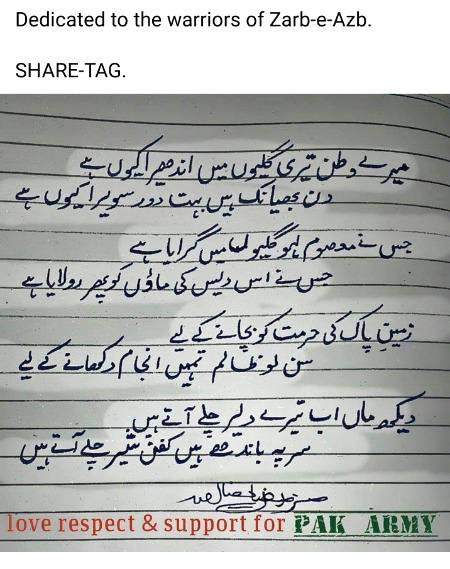 Dedicated to the warriors of Zarb-e-Azb.
SHARE-TAG.
میرے وطن تیری گلیوں میں اندھیرا کیوں ہے
دن بھیانک ہیں بہت دور سویرا کیوں ہے
جس نے معصوم لہو گلیوں میں گرایا ہے
جس نے اس دیس کی ماؤں کو پھر رولایا ہے
زمینِ پاک کی حرمت کو بچانے کے لیے
سن لو ظالم تمہیں انجام دکھانے کے لیے
دیکھ ماں اب تیرے دلیر چلے آتے ہیں
سر پہ باندھے ہیں کفن شیر چلے آتے ہیں
love respect & support for PAK ARMY